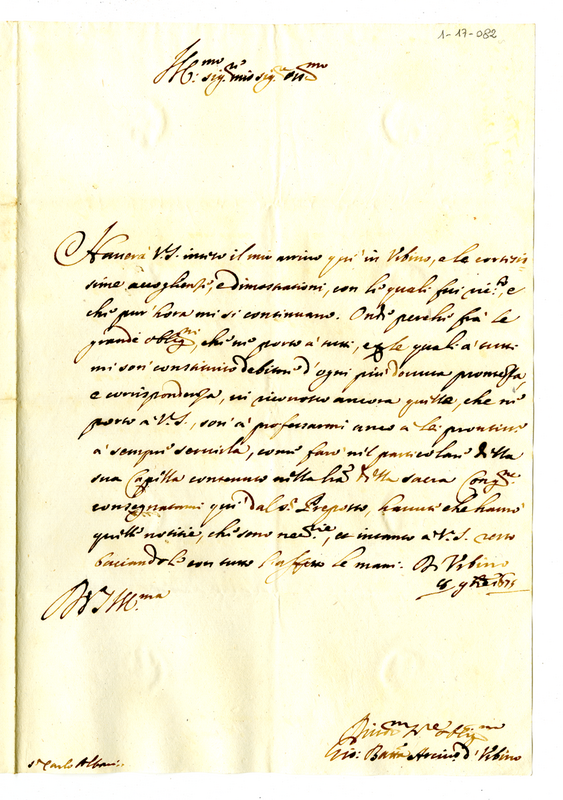 1-17-082
Ill.mo sig.r mio sig.r oss.mo
Hauerà V.S. inteso il mio arriuo quì in Vrbino, e le cortesis=
sime accoglienze, e dimostrationi, con le quali fui ric.to, e
che pur hora mi si continuano. Onde perche frà le
grandi oblig.ni, che ne porto à tutti, e le quali à tutti
mi son constituito debitore d'ogni più douuta prontezza,
e corrispondenza, ui riconosco ancora quelle, che ne
porto à V.S., son' à professarmi anco à lei prontiss.o
à sempre seruirla, come farò nel particolare della
sua Capella contenuto nella lra della sacra Cong.ne
consegnatami quì dal s.r Preposto, hauute che hauerò
quelle notitie, che sono nec.rie, et intanto à V.S. resto
baciandole con tutto l'affetto le mani. Di Vrbino
Di V.S. Ill.ma
Gio: Batta Arciu.o d'Vrbino
s.r Carlo Albani